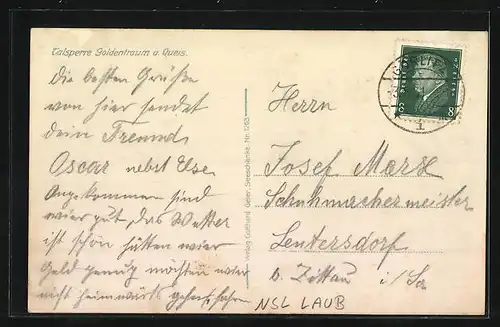 Talsperre Goldentraum a. Queis.
Die besten Grüße
von hier sendet
dein Freund
Oscar nebst Else
Angekommen sind
wier gut, das Wetter
ist schön hätten wier
Geld genug möchten wier
nicht heimwärts fahren
Verlag Gotthard Geier, Seeschänke. Nr. 1203
GÖRLITZ
1
8
8
Herrn
Josef Marx
Schuhmachermeister
Leutersdorf
b. Zittau i/Sa
NSL LAUB